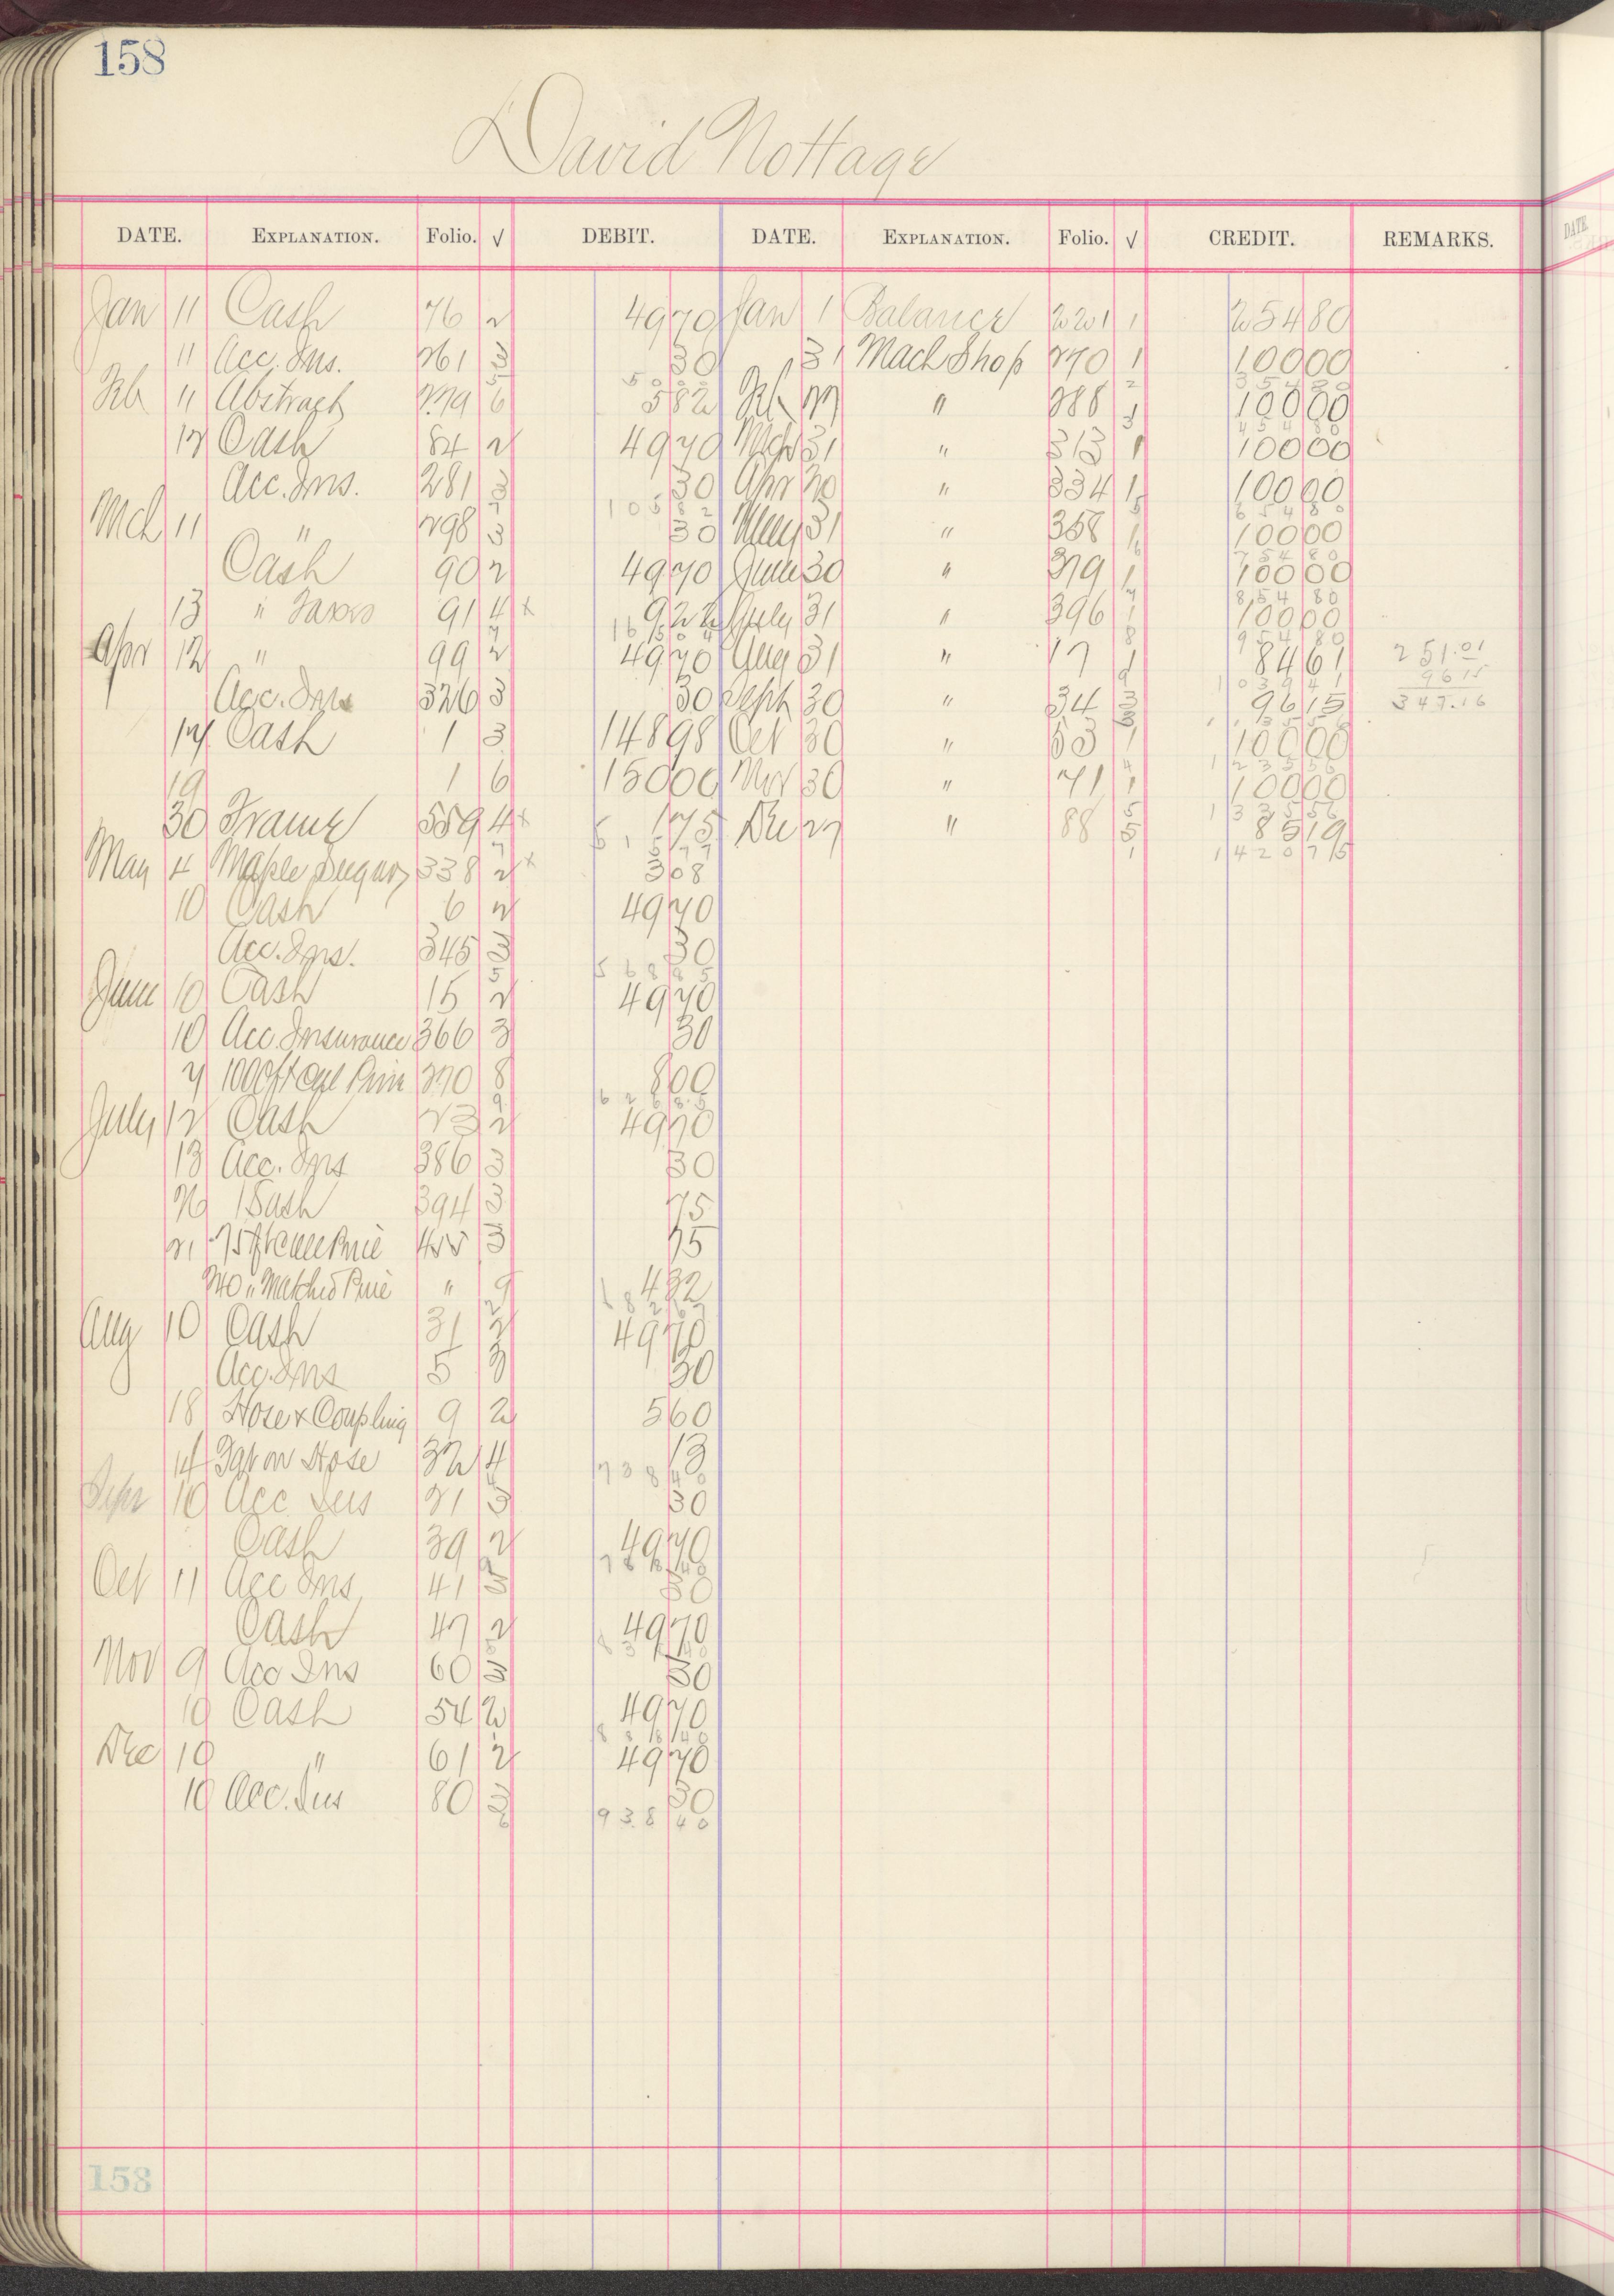 158
David Nottage
DATE. EXPLANATION. Folio. √ DEBIT. DATE. EXPLANATION. Folio. √ CREDIT. REMARKS.
Jan 11 Cash 76 2 49 70 Jan 1 Balance 221 1 254 80
11 Acc. Ins. 261 3 30 31 Mach Shop 270 1 100 00
50 00 2 354 80
Feb 11 Abstract 279 6 5 82 Feb 27 " 288 1 100 00
3 454 80
12 Cash 84 2 49 70 Mch 31 " 313 1 100 00
Acc. Ins. 281 3 30 Apr 30 " 334 1 100 00
105 82 5 654 80
Mch 11 " 298 3 30 May 31 " 358 1 100 00
6 754 80
Cash 90 2 49 70 June 30 " 379 1 100 00
7 854 80
13 " Taxes 91 4 x 9 22 July 31 " 396 1 100 00
8 954 80
Apr 12 " 99 2 49 70 Aug 31 " 17 1 84 61 251.01
1039 41 96 15
Acc. Ins 326 3 30 Sept 30 " 34 3 96 15 347.16
17 Cash 1 3 148 98 Oct 30 " 53 1 100 00
4 1235 56
19 1 6 150 00 Nov 30 " 71 1 100 00
5 1335 56
30 Frame 559 4 x 1 75 Dec 27 " 88 5 85 19
1 1420 75
May 4 Maple Sugar 338 2 x 3 08
10 Cash 6 2 49 70
Acc. Ins. 345 3 30
568 85
June 10 Cash 15 2 49 70
10 Acc. Insurance 366 3 30
1000 ft 370 8 8 00
626 85
July 12 Cash 23 2 49 70
13 Acc. Ins 386 3 30
1 Sash 394 3 75
21 75 ft 3 75
240 " Matched Pine " 9 4 32
Aug 10 Cash 31 2 49 70
Acc. Ins 5 3 30
18 Hose & Coupling 9 2 5 60
on Hose 32 4 13
738 40
Sept 10 Acc Ins 21 3 30
Cash 39 2 49 70
788 40
Oct 11 Acc Ins 41 3 30
Cash 47 2 49 70
838 40
Nov 9 Acc Ins 60 3 30
10 Cash 54 2 49 70
888 40
Dec 10 " 61 2 49 70
10 Acc. Ins 80 3 30
938 40
158